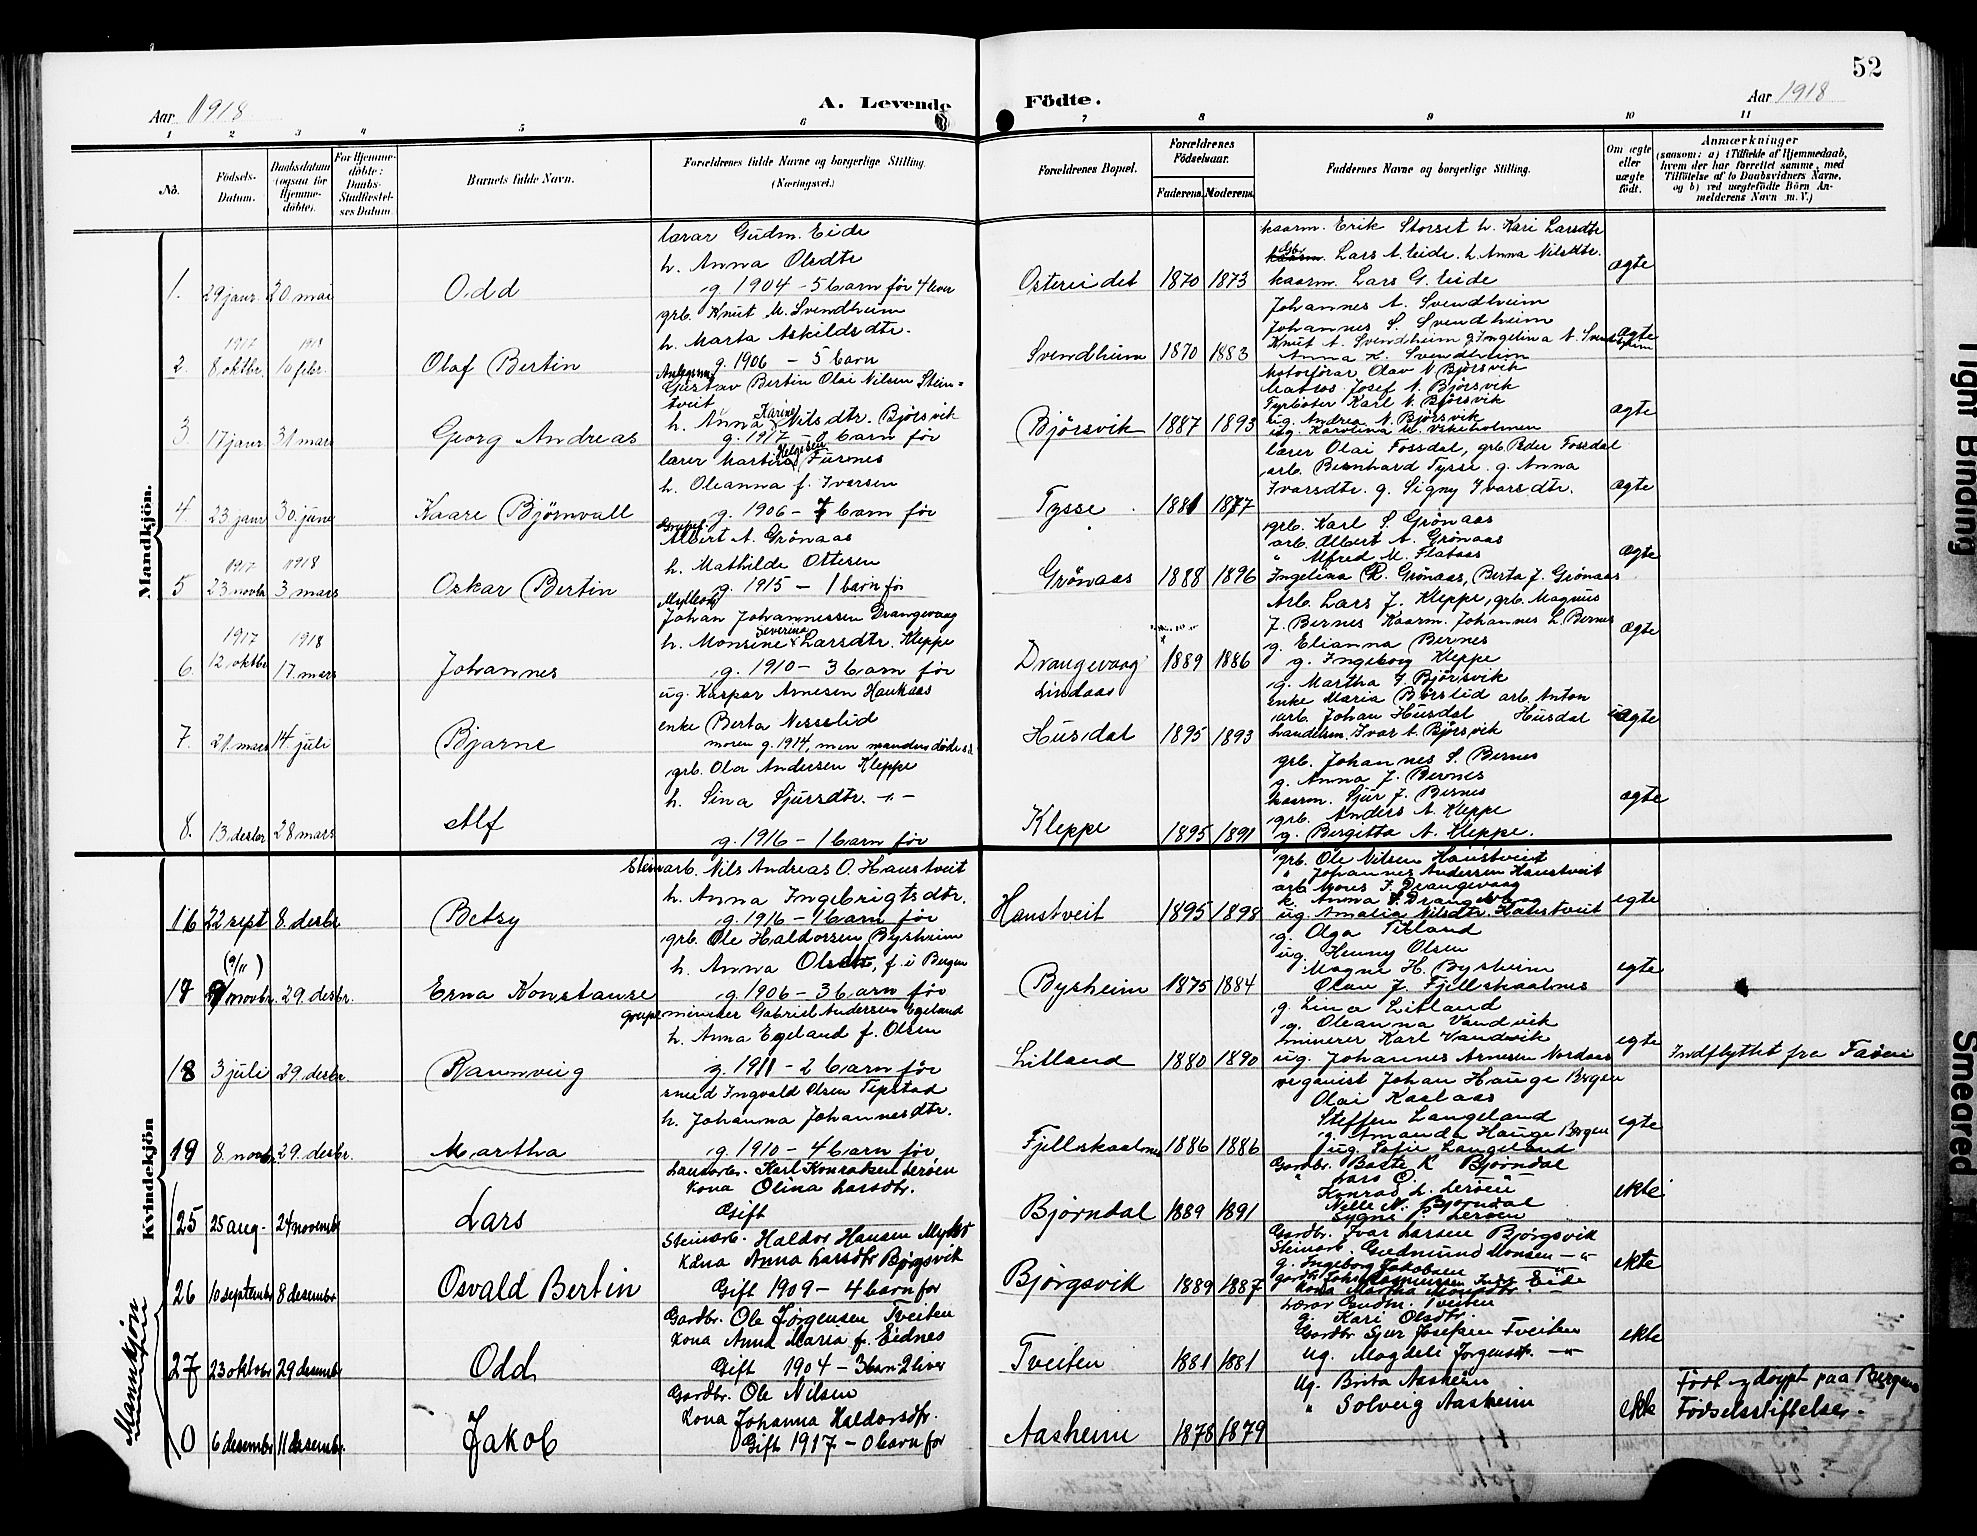 52
Aar 1918
A. Levende Födte.
Aar 1918
1 2 3 4 5 6 7 8 9 10 11
No.
Födsels-Datum.
Daabsdatum (ogsaa for Hjemmedöbte).
For Hjemmedöbte: Daabs-Stadfæstelses Datum.
Barnets fulde Navn.
Forældrenes fulde Navne og borgerlige Stilling. (Næringsvei.)
Forældrenes Bopæl.
Forældrenes Födselsaar.
Faderens. Moderens.
Faddernes Navne og borgerlige Stilling.
Om ægte eller uægte födt.
Anmærkninger
(saasom: a) i Tilfælde af Hjemmedaab, hvem der har forrettet samme, med Tilföielse af to Daabsvidners Navne, og b) ved uægtefödte Börn Anmelderens Navn m. V.)
Mandkjön.
lærar Gudm. Eide
h. Anna Olsdtr
g. 1904 - 5 barn før 4 lever
1. 29 janr. 20 mai Odd
Ostereidet 1870 1873
kaarm. Erik Storset h. Kari Larsdtr
Gbr. Lars A. Eide. h. Anna Nilsdtr.
kaarm. Lars G. Eide
ægte
grb. Knut M. Svendheim
h. Marta Askildsdtr.
g. 1906 - 5 barn
1917 1918
2. 8 oktbr. 10 febr. Olaf Bertin
Svendheim 1870 1883
Johannes A. Svendheim
Johannes S. Svendheim
Knut A. Svendheim g. Ingelina A. Svendheim
Anna K. Svendheim
ægte
Gustav Bertin Olai Nilsen Steintveit
h. Anna Karine Nilsdtr. Bjørsvik
g. 1917 - 0 barn før
3. 17 janr. 31 mars Georg Andreas
Bjørsvik 1887 1893
Motorfører Olav N. Bjørsvik
Matros Josef N. Bjørsvik
Fyrbøter Karl N. Bjørsvik
ug. Andrea N. Bjørsvik
ægte
lærer Martin Helgesen Furnes
h. Oleanna f. Iversen
g. 1906 - 7 barn før
4. 23 janr 30 june Kaare Bjørnvall
Tysse 1881 1877
lærer Olai Fossdal, grb. Peder Fossdal
arb. Bernhard Tysse. g. Anna
Ivarsdtr. g. Signy Ivarsdtr.
ægte
Albert A. Grönaas
h. Mathilde Ottesen
g. 1915 - 1 barn før
1917 1918
5 23 novbr 3 mars Oskar Bertin
Grönaas 1888 1896
grb. Karl S. Grönaas
arb. Albert A. Grönaas
" Alfred M. Flataas
Ingelina R. Grönaas, Berta J. Grönaas
ægte
Johan Johannessen Drangevaag
h. Monsine Severina Larsdtr. Kleppe
g. 1910 - 3 barn før
1917 1918
6. 12 oktbr 17 mars Johannes
Drangevaag Lindaas 1889 1886
Arb. Lars J. Kleppe, grb. Magnus
J. Bernes Kaarm. Johannes L. Bernes
g. Elianna Bernes
g. Ingeborg Kleppe
g. Martha J. Bjørsvik
ægte
ug. Kaspar Arnesen Haukaas
enke Berta Nesslid
moren g. 1914, men manden døde s.å.
7. 21. mars 14. juli Bjarne
Husdal 1895 1893
enke Maria Børslid arb. Anton
arb. Johan Husdal Husdal
handelsm. Ivar A. Bjørsvik
uægte
grb. Ola Andersen Kleppe
h. Sina Sjursdtr. -"-
g. 1916 - 1 barn før
8. 13 desbr 28 mars Alf
Kleppe 1895 1891
grb. Johannes S. Bernes
g. Anna J. Bernes
kaarm. Sjur J. Bernes
grb. Anders A. Kleppe
g. Bergitta A. Kleppe.
ægte
Kvindekjön
Steinarb. Nils Andreas O. Haustveit
h. Anna Ingebrigtsdtr.
g. 1916 - 1 barn før
16 22 sept 8. desbr Betzy
Haustveit 1895 1898
grb. Ole Nilsen Haustveit
" Johannes Andersen Haustveit
arb Mons J. Drangevaag
k. Anna Drangevaag
ug. Amalia Nilsdtr. Haustveit
egte
grb. Ole Haldorsen Bysheim
h. Anna Olsdtr, f. i Bergen
g. 1906 - 3 barn før
(9/11)
17 novbr. 29. desbr. Erna Konstanse
Bysheim 1875 1884
g. Olga Titland
ug. Henny Olsen
Magne H. Bysheim
Olav J. Fjellskaalnes
egte
grubeminerer Gabriel Andersen Egeland
h. Anna Egeland f. Olsen
g. 1911 - 2 barn før
18 3 juli 29 desbr. Rannveig
Litland 1880 1890
g. Lina Litland
g. Oleanna Vandvik
minerer Karl Vandvik
ug. Johannes Arnesen Nordaas
egte
Indflyttet fra
smed Ingvald Olsen Tepstad
h. Johanna Johannesdtr.
g. 1910 - 4 barn før
19 8. novbr. 29. desbr. Martha
Fjellskaalnes 1886 1886
organist Johan Hauge Bergen
Olai Kaslaas
Steffen Langeland
g. Amanda Hauge Bergen
ug. Sofie Langeland
egte
Mannkjön
Lausarb. Karl Konradsen Lerøen
Kona Olina Larsdtr.
Gift
25 25 aug. 24 novembr Lars
Bjørndal 1889 1891
Gardbr. Baste K Bjørndal
" Lars O. "
Konrad L. Lerøen
Nille N. Bjørndal
Sygni Lerøen
ekte
Steinarb. Haldor Hansen Myhr
Kona Anna Larsdtr Bjørgsvik
Gift 1909 - 4 barn før
26 10 septembr 8 desembr Osvald Bertin
Bjørgsvik 1889 1887
Gardbr. Ivar Larsen Bjørgsvik
Steinarb. Gudmund Monsen -"-
g. Ingeborg Jakobsen
Kona Martha Monsdtr.
ekte
Gardbr. Ole Jørgensen Tveiten
Kona Anna Maria f. Eidnes
Gift 1904 - 3 barn - 2 liver
27 23 oktobr 29 desembr Odd
Tveiten 1881 1881
Lærar Gudm. Tveiten
g. Kari Olsdtr
Gardbr Sjur Josefsen Tveiten
ug. Magdeli Jørgensdtr. -"-
ekte
Gardbr. Ole Nilsen
Kona Johanna Haldorsdtr.
Gift 1917 - 0 barn før
0 6 desembr 11 desembr. Jakob
Aasheim 1878 1879
ug. Brita Aasheim
" Solveig Aasheim
ekte
Født og døypt paa Bergens
Fødselsstiftelse.
Tight Binding
Smeared